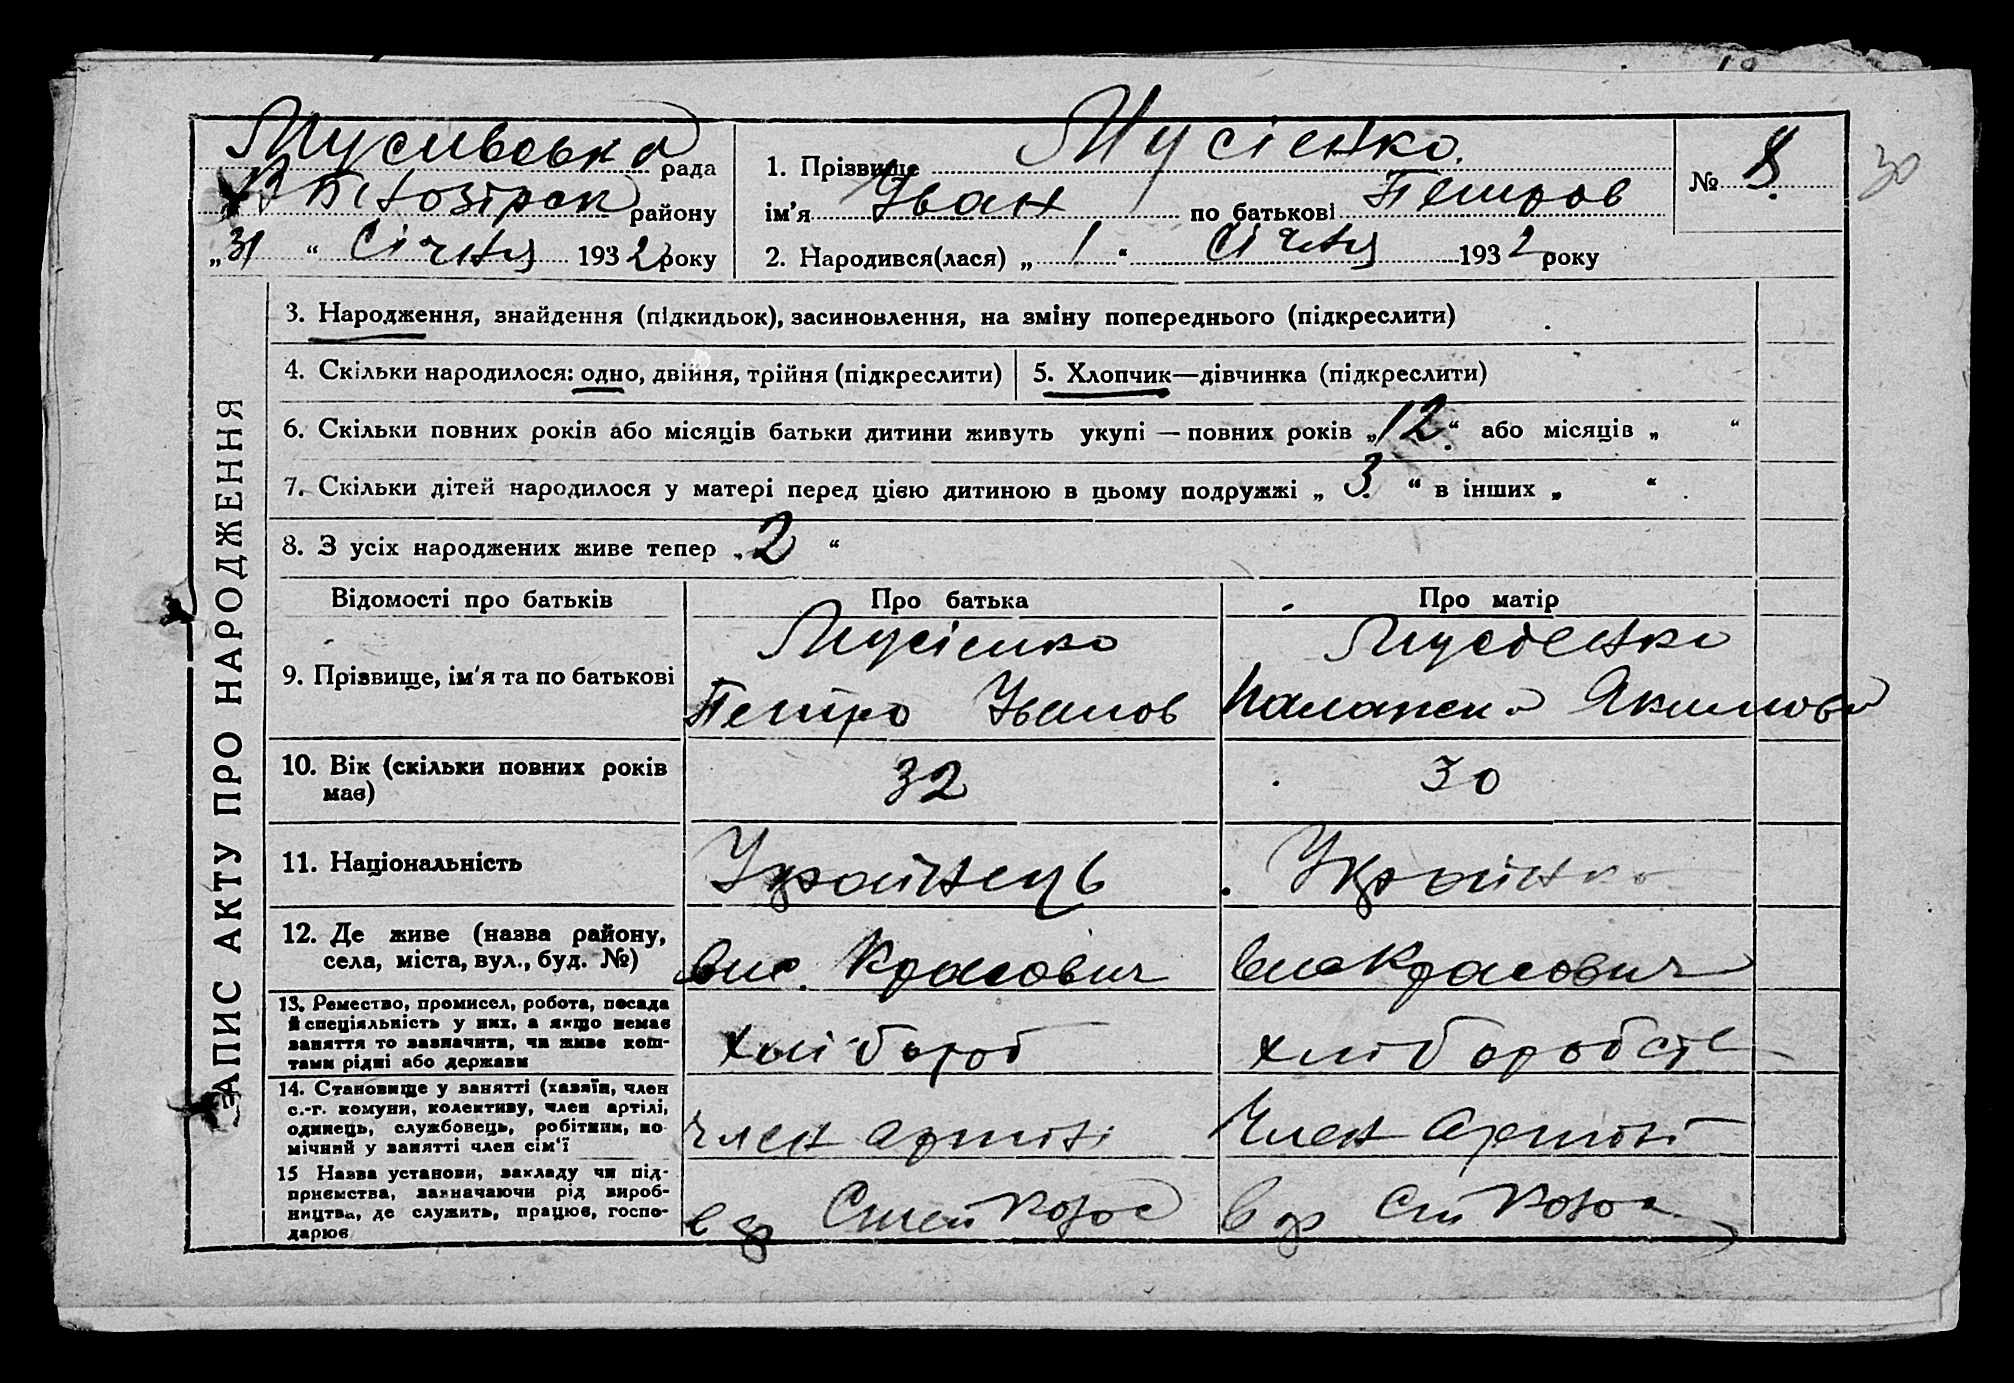 Мусивська рада
В Білозірск району
„31“ Січня 1932 року
1. Прізвище Мусієнко.
ім'я Іван по батькові Петров
2. Народився(лася) „1“ Січня 1932 року
№ 8.
30
ЗАПИС АКТУ ПРО НАРОДЖЕННЯ
3. Народження, знайдення (підкидьок), засиновлення, на зміну попереднього (підкреслити)
4. Скільки народилося: одно, двійня, трійня (підкреслити)
5. Хлопчик—дівчинка (підкреслити)
6. Скільки повних років або місяців батьки дитини живуть укупі — повних років „12“ або місяців „ “
7. Скільки дітей народилося у матері перед цією дитиною в цьому подружжі „3.“ в інших „ “
8. З усіх народжених живе тепер „2“
Відомості про батьків
Про батька
Про матір
9. Прізвище, ім'я та по батькові
Мусієнко
Петро Іванов
Мусієнко
Палажка Якимова
10. Вік (скільки повних років
має)
32
30
11. Національність
Українець
Українка
12. Де живе (назва району,
села, міста, вул., буд. №)
вис. Красович
вис Красович
13. Ремество, промисел, робота, посада
й спеціяльність у них, а якщо немає
заняття то зазначити, чи живе кош-
тами рідні або держави
хлібороб
хліборобств
14. Становище у занятті (хазяїн, член
с.-г. комуни, колективу, член артілі,
одинець, службовець, робітник, по-
мічний у занятті член сім'ї
член артілі
Член Артілі
15 Назва установи, закладу чи під-
приємства, зазначаючи рід вироб-
ництва, де служить, працює, госпо-
дарює